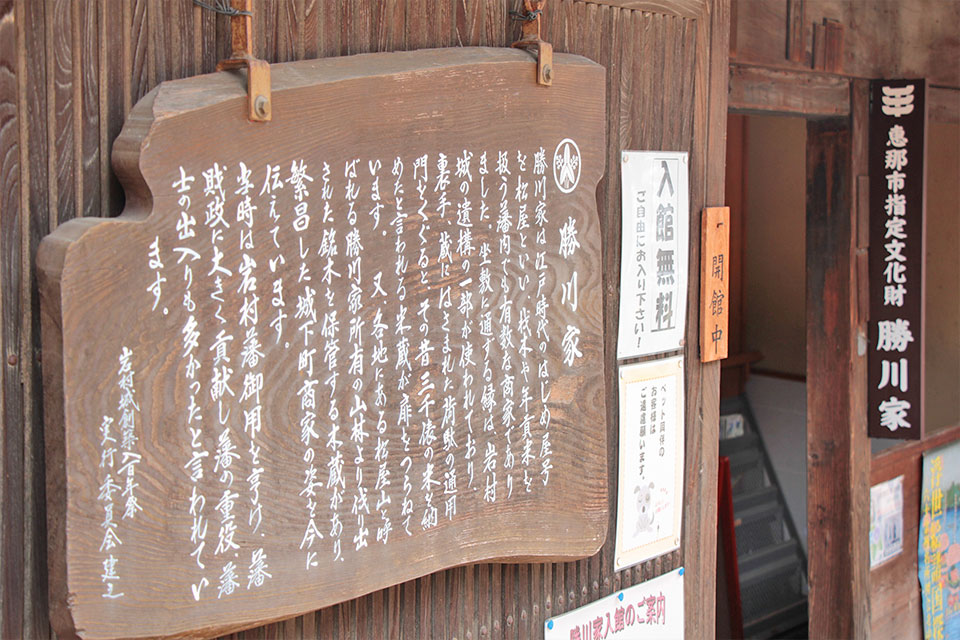 勝川家
勝川家は江戸時代のはじめ、屋号
を松屋といい、材木や年貢米を
扱う藩内でも有数な商家であり
ました。座敷に通ずる縁は、岩村
城の遺構の一部が使われており、
裏手、蔵にはさまれた荷駄の通用
門をくぐると、その昔三千俵の米を納
めたと言われる米蔵が扉をつらねて
います。又、各地にある松屋山と呼
ばれる勝川家所有の山林より伐り出
された銘木を保管する木蔵があり、
繁昌した城下町商家の姿を今に
伝えています。
当時は岩村藩御用を亨け、藩
財政に大きく貢献し藩の重役、藩
士の出入りも多かったと言われてい
ます。
岩村城創築八百年祭
実行委員会建之
入館無料
ご自由にお入り下さい!
開館中
ペット同伴の
お客様は
ご遠慮願います。
勝川家入館のご案内
恵那市指定文化財 勝川家